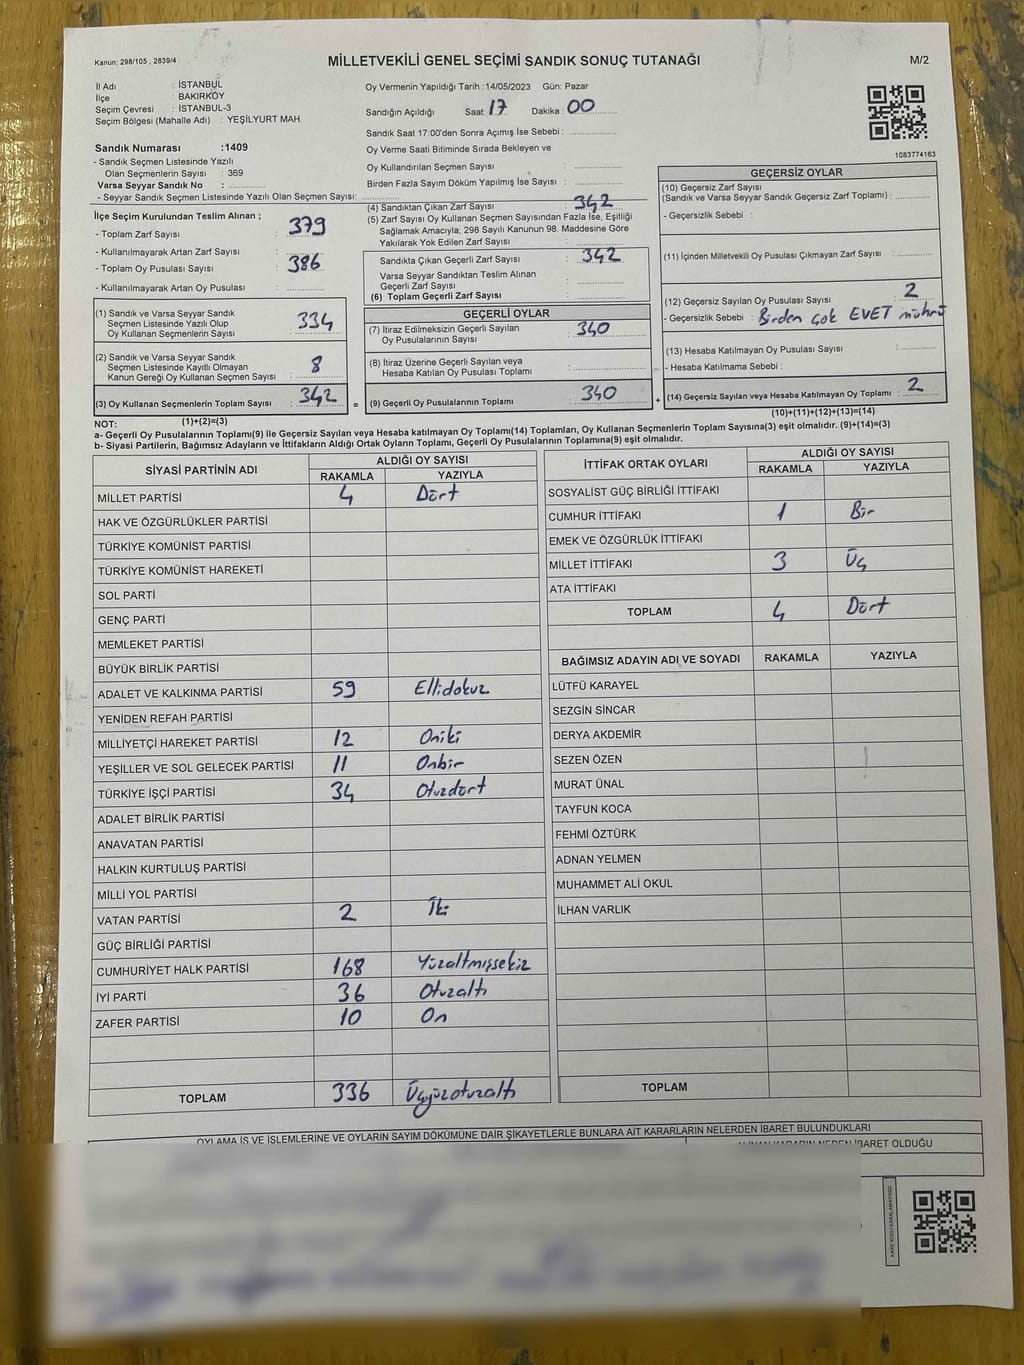 Kanun: 298/105 , 2839/4
MİLLETVEKİLİ GENEL SEÇİMİ SANDIK SONUÇ TUTANAĞI
M/2
İl Adı : İSTANBUL
İlçe : BAKIRKÖY
Seçim Çevresi : İSTANBUL-3
Seçim Bölgesi (Mahalle Adı) : YEŞİLYURT MAH.
Oy Vermenin Yapıldığı Tarih : 14/05/2023 Gün: Pazar
Sandığın Açıldığı Saat: 17 Dakika : 00
Sandık Saat 17:00'den Sonra Açımış İse Sebebi :
Oy Verme Saati Bitiminde Sırada Bekleyen ve
Oy Kullandırılan Seçmen Sayısı :
Birden Fazla Sayım Döküm Yapılmış İse Sayısı :
1083774163
Sandık Numarası :1409
- Sandık Seçmen Listesinde Yazılı
Olan Seçmenlerin Sayısı : 369
Varsa Seyyar Sandık No :
- Seyyar Sandık Seçmen Listesinde Yazılı Olan Seçmen Sayısı:
İlçe Seçim Kurulundan Teslim Alınan ;
- Toplam Zarf Sayısı : 379
- Kullanılmayarak Artan Zarf Sayısı :
- Toplam Oy Pusulası Sayısı : 386
- Kullanılmayarak Artan Oy Pusulası :
(1) Sandık ve Varsa Seyyar Sandık
Seçmen Listesinde Yazılı Olup
Oy Kullanan Seçmenlerin Sayısı : 334
(2) Sandık ve Varsa Seyyar Sandık
Seçmen Listesinde Kayıtlı Olmayan
Kanun Gereği Oy Kullanan Seçmen Sayısı : 8
(3) Oy Kullanan Seçmenlerin Toplam Sayısı : 342 =
(4) Sandıktan Çıkan Zarf Sayısı : 342
(5) Zarf Sayısı Oy Kullanan Seçmen Sayısından Fazla İse, Eşitliği
Sağlamak Amacıyla; 298 Sayılı Kanunun 98. Maddesine Göre
Yakılarak Yok Edilen Zarf Sayısı :
Sandıkta Çıkan Geçerli Zarf Sayısı : 342
Varsa Seyyar Sandıktan Teslim Alınan
Geçerli Zarf Sayısı :
(6) Toplam Geçerli Zarf Sayısı :
GEÇERLİ OYLAR
(7) İtiraz Edilmeksizin Geçerli Sayılan
Oy Pusulalarının Sayısı : 340
(8) İtiraz Üzerine Geçerli Sayılan veya
Hesaba Katılan Oy Pusulası Toplamı :
(9) Geçerli Oy Pusulalarının Toplamı : 340 +
GEÇERSİZ OYLAR
(10) Geçersiz Zarf Sayısı
(Sandık ve Varsa Seyyar Sandık Geçersiz Zarf Toplamı) :
- Geçersizlik Sebebi :
(11) İçinden Milletvekili Oy Pusulası Çıkmayan Zarf Sayısı :
(12) Geçersiz Sayılan Oy Pusulası Sayısı : 2
- Geçersizlik Sebebi : Birden çok EVET mührü
(13) Hesaba Katılmayan Oy Pusulası Sayısı :
- Hesaba Katılmama Sebebi :
(14) Geçersiz Sayılan veya Hesaba Katılmayan Oy Toplamı : 2
NOT: (1)+(2)=(3)
(10)+(11)+(12)+(13)=(14)
a- Geçerli Oy Pusulalarının Toplamı(9) ile Geçersiz Sayılan veya Hesaba Katılmayan Oy Toplamı(14) Toplamları, Oy Kullanan Seçmenlerin Toplam Sayısına(3) eşit olmalıdır. (9)+(14)=(3)
b- Siyasi Partilerin, Bağımsız Adayların ve İttifakların Aldığı Ortak Oyların Toplamı, Geçerli Oy Pusulalarının Toplamına(9) eşit olmalıdır.
SİYASİ PARTİNİN ADI ALDIĞI OY SAYISI
RAKAMLA YAZIYLA
MİLLET PARTİSİ 4 Dört
HAK VE ÖZGÜRLÜKLER PARTİSİ
TÜRKİYE KOMÜNİST PARTİSİ
TÜRKİYE KOMÜNİST HAREKETİ
SOL PARTİ
GENÇ PARTİ
MEMLEKET PARTİSİ
BÜYÜK BİRLİK PARTİSİ
ADALET VE KALKINMA PARTİSİ 59 Ellidokuz
YENİDEN REFAH PARTİSİ
MİLLİYETÇİ HAREKET PARTİSİ 12 Oniki
YEŞİLLER VE SOL GELECEK PARTİSİ 11 Onbir
TÜRKİYE İŞÇİ PARTİSİ 34 Otuzdört
ADALET BİRLİK PARTİSİ
ANAVATAN PARTİSİ
HALKIN KURTULUŞ PARTİSİ
MİLLİ YOL PARTİSİ
VATAN PARTİSİ 2 İki
GÜÇ BİRLİĞİ PARTİSİ
CUMHURİYET HALK PARTİSİ 168 Yüzaltmışsekiz
İYİ PARTİ 36 Otuzaltı
ZAFER PARTİSİ 10 On
TOPLAM 336 Üçyüzotuzaltı
İTTİFAK ORTAK OYLARI ALDIĞI OY SAYISI
RAKAMLA YAZIYLA
SOSYALİST GÜÇ BİRLİĞİ İTTİFAKI
CUMHUR İTTİFAKI 1 Bir
EMEK VE ÖZGÜRLÜK İTTİFAKI
MİLLET İTTİFAKI 3 Üç
ATA İTTİFAKI
TOPLAM 4 Dört
BAĞIMSIZ ADAYIN ADI VE SOYADI RAKAMLA YAZIYLA
LÜTFÜ KARAYEL
SEZGİN SİNCAR
DERYA AKDEMİR
SEZEN ÖZEN
MURAT ÜNAL
TAYFUN KOCA
FEHMİ ÖZTÜRK
ADNAN YELMEN
MUHAMMET ALİ OKUL
İLHAN VARLIK
TOPLAM
OYLAMA İŞ VE İŞLEMLERİNE VE OYLARIN SAYIM DÖKÜMÜNE DAİR ŞİKAYETLERLE BUNLARA AİT KARARLARIN NELERDEN İBARET BULUNDUKLARI
ALINAN KARARIN NEDEN İBARET OLDUĞU
KARE KODU KARALAMAYINIZ!